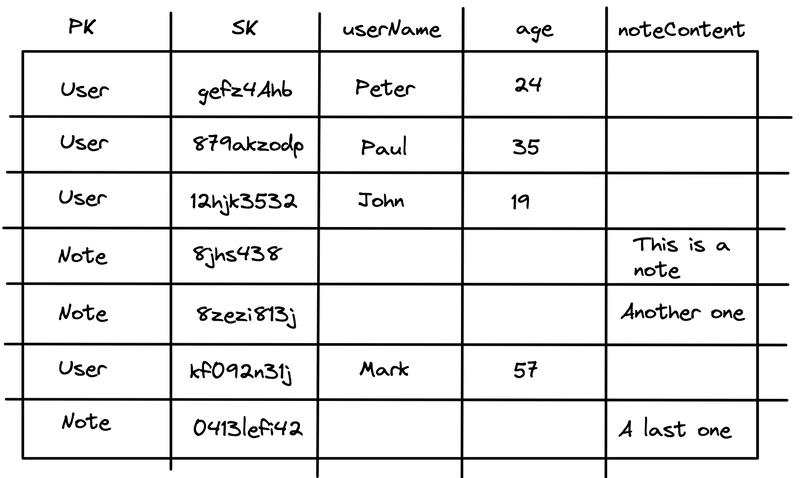 PK SK userName age noteContent
User gefz4Ahb Peter 24
User 879akzodp Paul 35
User 12hjk3532 John 19
Note 8jhs438 This is a
note
Note 8zezi813j Another one
User kf092n31j Mark 57
Note 0413lefi42 A last one